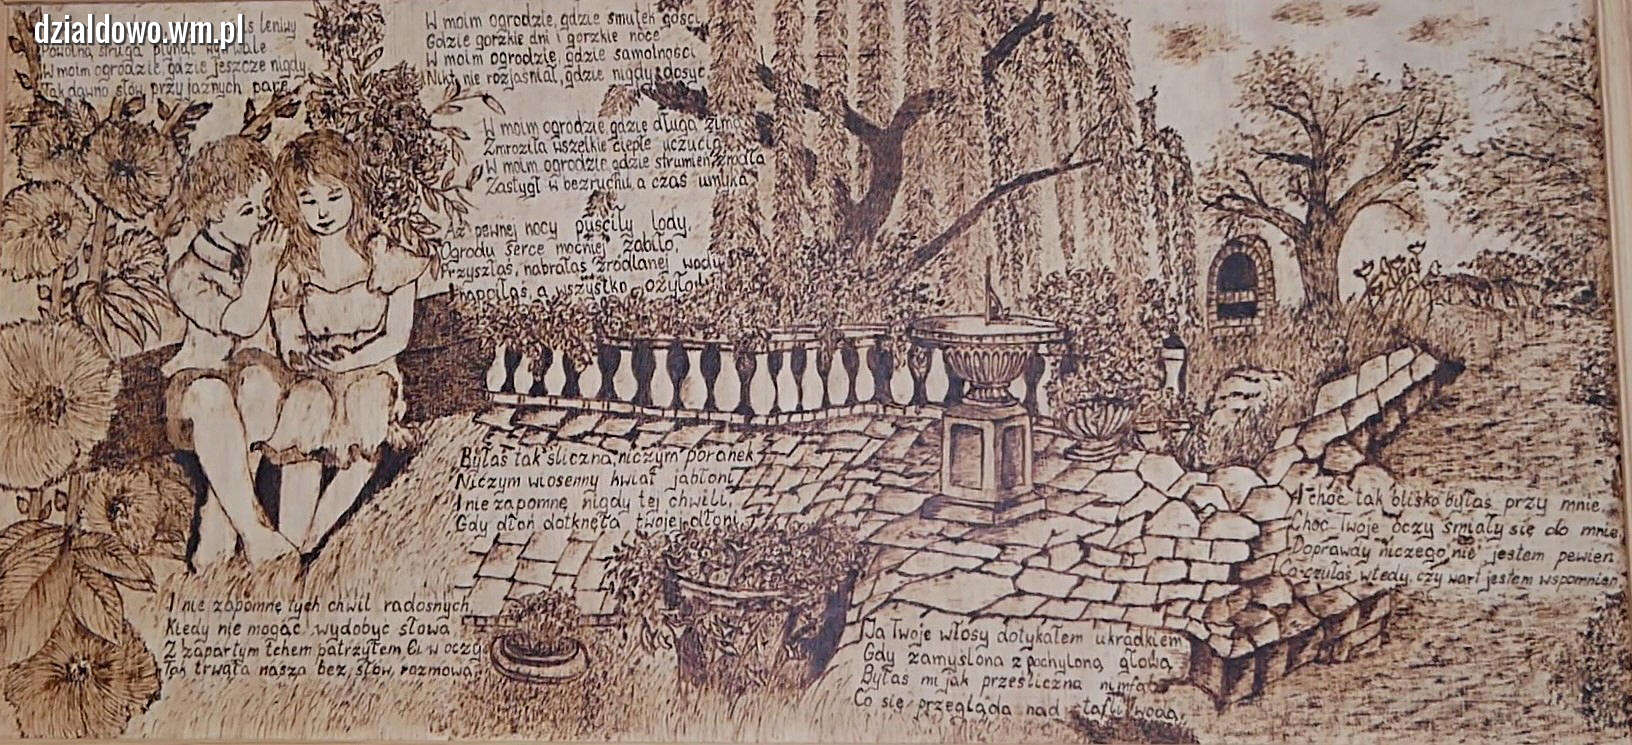 dzialdowo.wm.pl
leniwy
Powolną strugą płynął wytrwale
W moim ogrodzie, gdzie jeszcze nigdy
Tak dawno słów przyjaznych parę
W moim ogrodzie, gdzie smutek gości
Gdzie gorzkie dni i gorzkie noce
W moim ogrodzie, gdzie samotności
Nikt nie rozjaśniał, gdzie nigdy dosyć
W moim ogrodzie gdzie długa zima
Zmroziła wszelkie ciepłe uczucia
W moim ogrodzie gdzie strumień źródła
Zastygł w bezruchu a czas umyka
Aż pewnej nocy puściły lody,
Ogrodu serce mocniej zabiło,
Przyszłaś, nabrałaś źródlanej wody
napoiłaś, a wszystko ożyło
Byłaś tak śliczna, niczym poranek
Niczym wiosenny kwiat jabłoni
I nie zapomnę nigdy tej chwili,
Gdy dłoń dotknęła twojej dłoni
I nie zapomnę tych chwil radosnych,
Kiedy nie mogąc wydobyć słowa
Z zapartym tchem patrzyłem Ci w oczy
Tak trwała nasza bez słów rozmowa
Ja Twoje włosy dotykałem ukradkiem
Gdy zamyślona z pochyloną głową
Byłaś mi jak prześliczna nimfa
Co się przegląda nad taflą wodą,
A choć tak blisko byłaś przy mnie,
Choć Twoje oczy śmiały się do mnie,
Doprawdy niczego nie jestem pewien
Co czułaś wtedy, czy wart jestem wspomnień